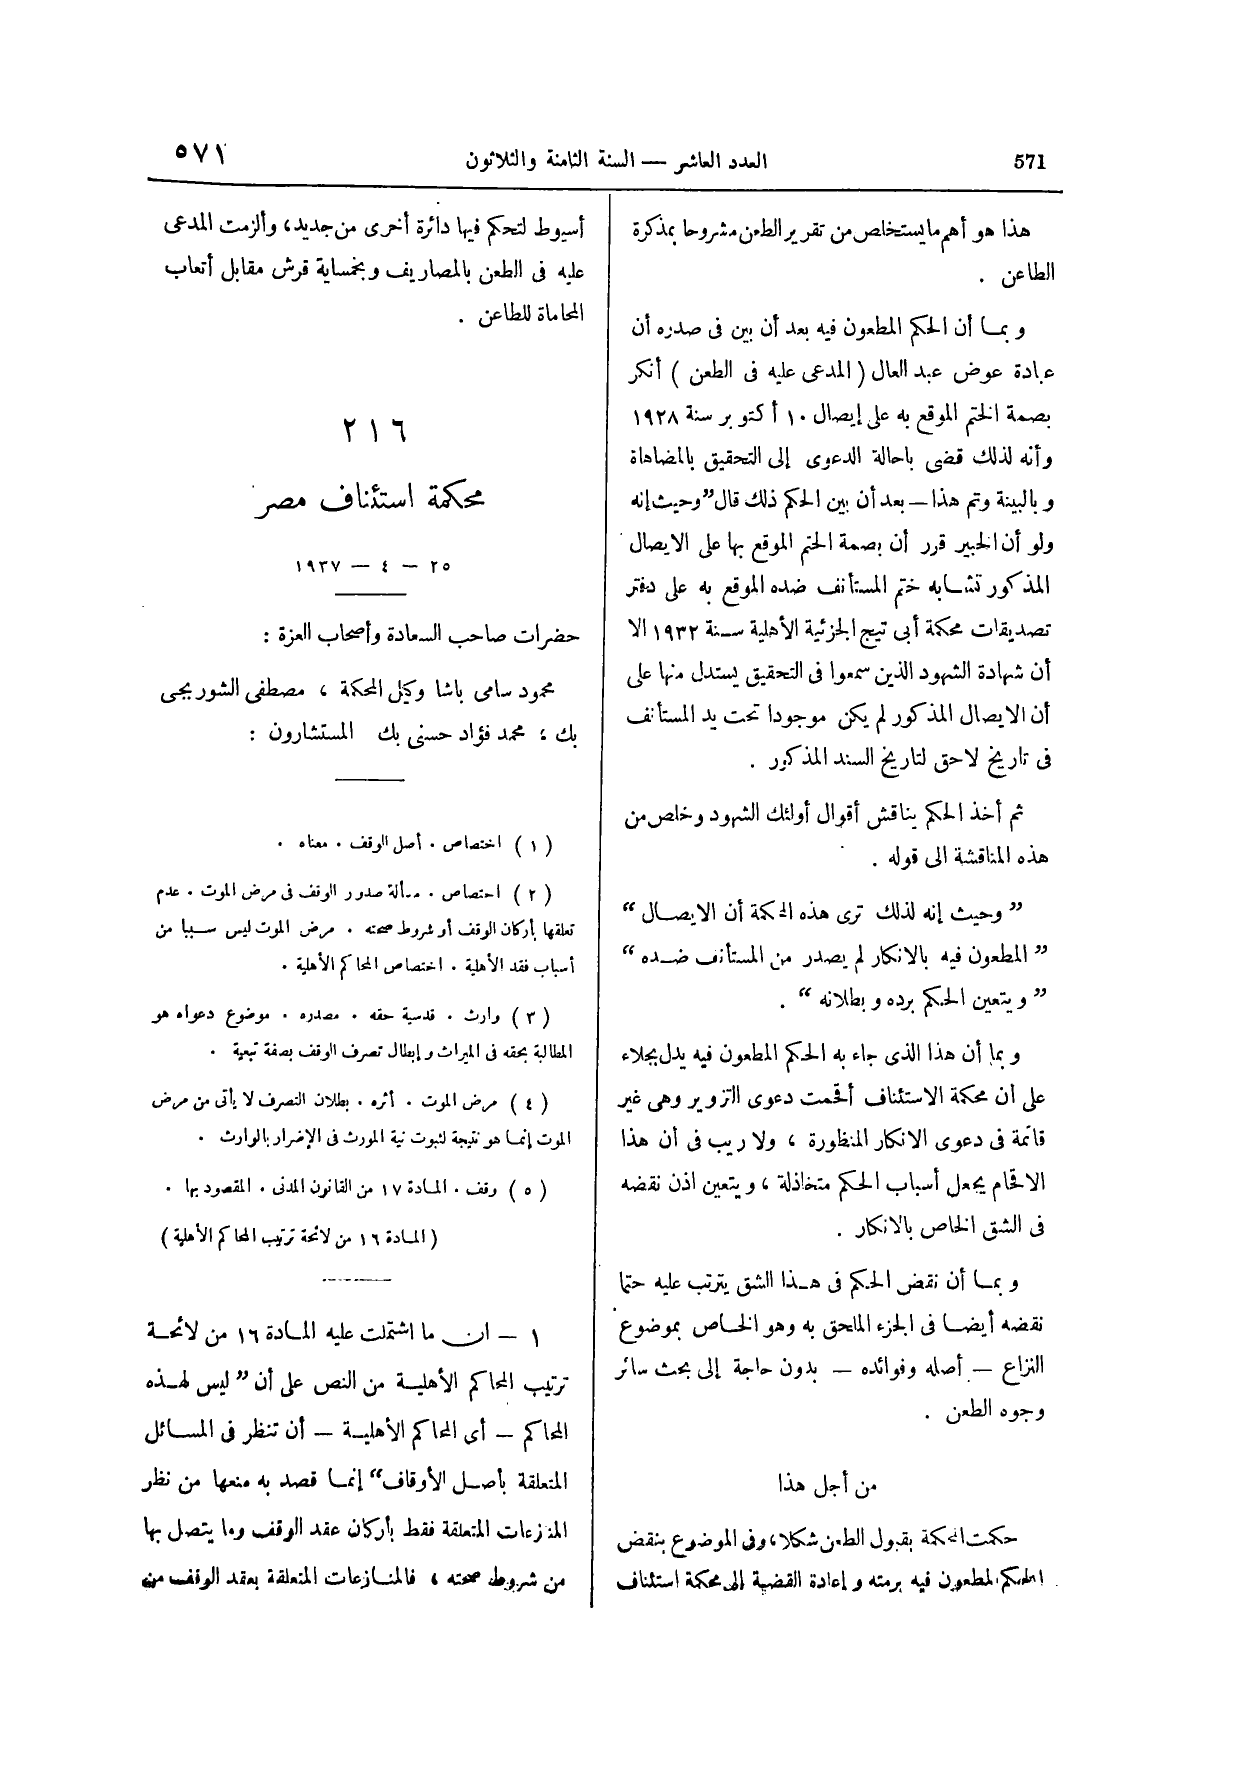 571
العدد العاشر — السنة الثامنة والثلاثون
٥٧١
هذا هو أهم ما يستخلص من تقرير الطعن مشروحا بمذكرة
الطاعن .
وبما أن الحكم المطعون فيه بعد أن بين فى صدره أن
عبادة عوض عبد العال ( المدعى عليه فى الطعن ) أنكر
بصمة الختم الموقع به على إيصال ١٠ أكتوبر سنة ١٩٢٨
وأنه لذلك قضى باحالة الدعوى إلى التحقيق بالمضاهاة
وبالبينة وتم هذا — بعد أن بين الحكم ذلك قال ”وحيث إنه
ولو أن الخبير قرر أن بصمة الختم الموقع بها على الايصال
المذكور تشابه ختم المستأنف ضده الموقع به على دفتر
تصديقات محكمة أبى تيج الجزئية الأهلية سنة ١٩٣٢ الا
أن شهادة الشهود الذين سمعوا فى التحقيق يستدل منها على
أن الايصال المذكور لم يكن موجودا تحت يد المستأنف
فى تاريخ لاحق لتاريخ السند المذكور .
ثم أخذ الحكم يناقش أقوال أولئك الشهود وخلص من
هذه المناقشة الى قوله .
” وحيث إنه لذلك ترى هذه المحكمة أن الايصال “
” المطعون فيه بالانكار لم يصدر من المستأنف ضده “
” ويتعين الحكم برده وبطلانه “ .
وبما أن هذا الذى جاء به الحكم المطعون فيه يدل بجلاء
على أن محكمة الاستئناف أقحمت دعوى التزوير وهى غير
قائمة فى دعوى الانكار المنظورة ، ولا ريب فى أن هذا
الاقحام يجعل أسباب الحكم متخاذلة ، ويتعين اذن نقضه
فى الشق الخاص بالانكار .
وبما أن نقض الحكم فى هذا الشق يترتب عليه حتما
نقضه أيضا فى الجزء الملحق به وهو الخاص بموضوع
النزاع — أصله وفوائده — بدون حاجة إلى بحث سائر
وجوه الطعن .
من أجل هذا
حكمت المحكمة بقبول الطعن شكلا، وفى الموضوع بنقض
الحكم المطعون فيه برمته وإعادة القضية إلى محكمة استئناف
أسيوط لتحكم فيها دائرة أخرى من جديد، وألزمت المدعى
عليه فى الطعن بالمصاريف وبخمساية قرش مقابل أتعاب
المحاماة للطاعن .
٢١٦
محكمة استئناف مصر
٢٥ — ٤ — ١٩٣٧
حضرات صاحب السعادة وأصحاب العزة :
محمود سامى باشا وكيل المحكمة ، مصطفى الشوربجى
بك ، محمد فؤاد حسنى بك المستشارون :
( ١ ) اختصاص . أصل الوقف . معناه .
( ٢ ) اختصاص . مسألة صدور الوقف فى مرض الموت . عدم
تعلقها بأركان الوقف أو شروط صحته . مرض الموت ليس سببا من
أسباب فقد الأهلية . اختصاص المحاكم الأهلية .
( ٣ ) وارث . قدسية حقه . مصدره . موضوع دعواه هو
المطالبة بحقه فى الميراث وإبطال تصرف الوقف بصفة تبعية .
( ٤ ) مرض الموت . أثره . بطلان التصرف لا يأتى من مرض
الموت إنما هو نتيجة لثبوت نية المورث فى الإضرار بالوارث .
( ٥ ) وقف . المادة ١٧ من القانون المدنى . المقصود بها .
( المادة ١٦ من لائحة ترتيب المحاكم الأهلية )
١ — ان ما اشتملت عليه المادة ١٦ من لائحة
ترتيب المحاكم الأهلية من النص على أن ” ليس لهذه
المحاكم — أى المحاكم الأهلية — أن تنظر فى المسائل
المتعلقة بأصل الأوقاف“ إنما قصد به منعها من نظر
المنزعات المتعلقة فقط بأركان عقد الوقف وما يتصل بها
من شروط صحته ، فالمنازعات المتعلقة بعقد الوقف من